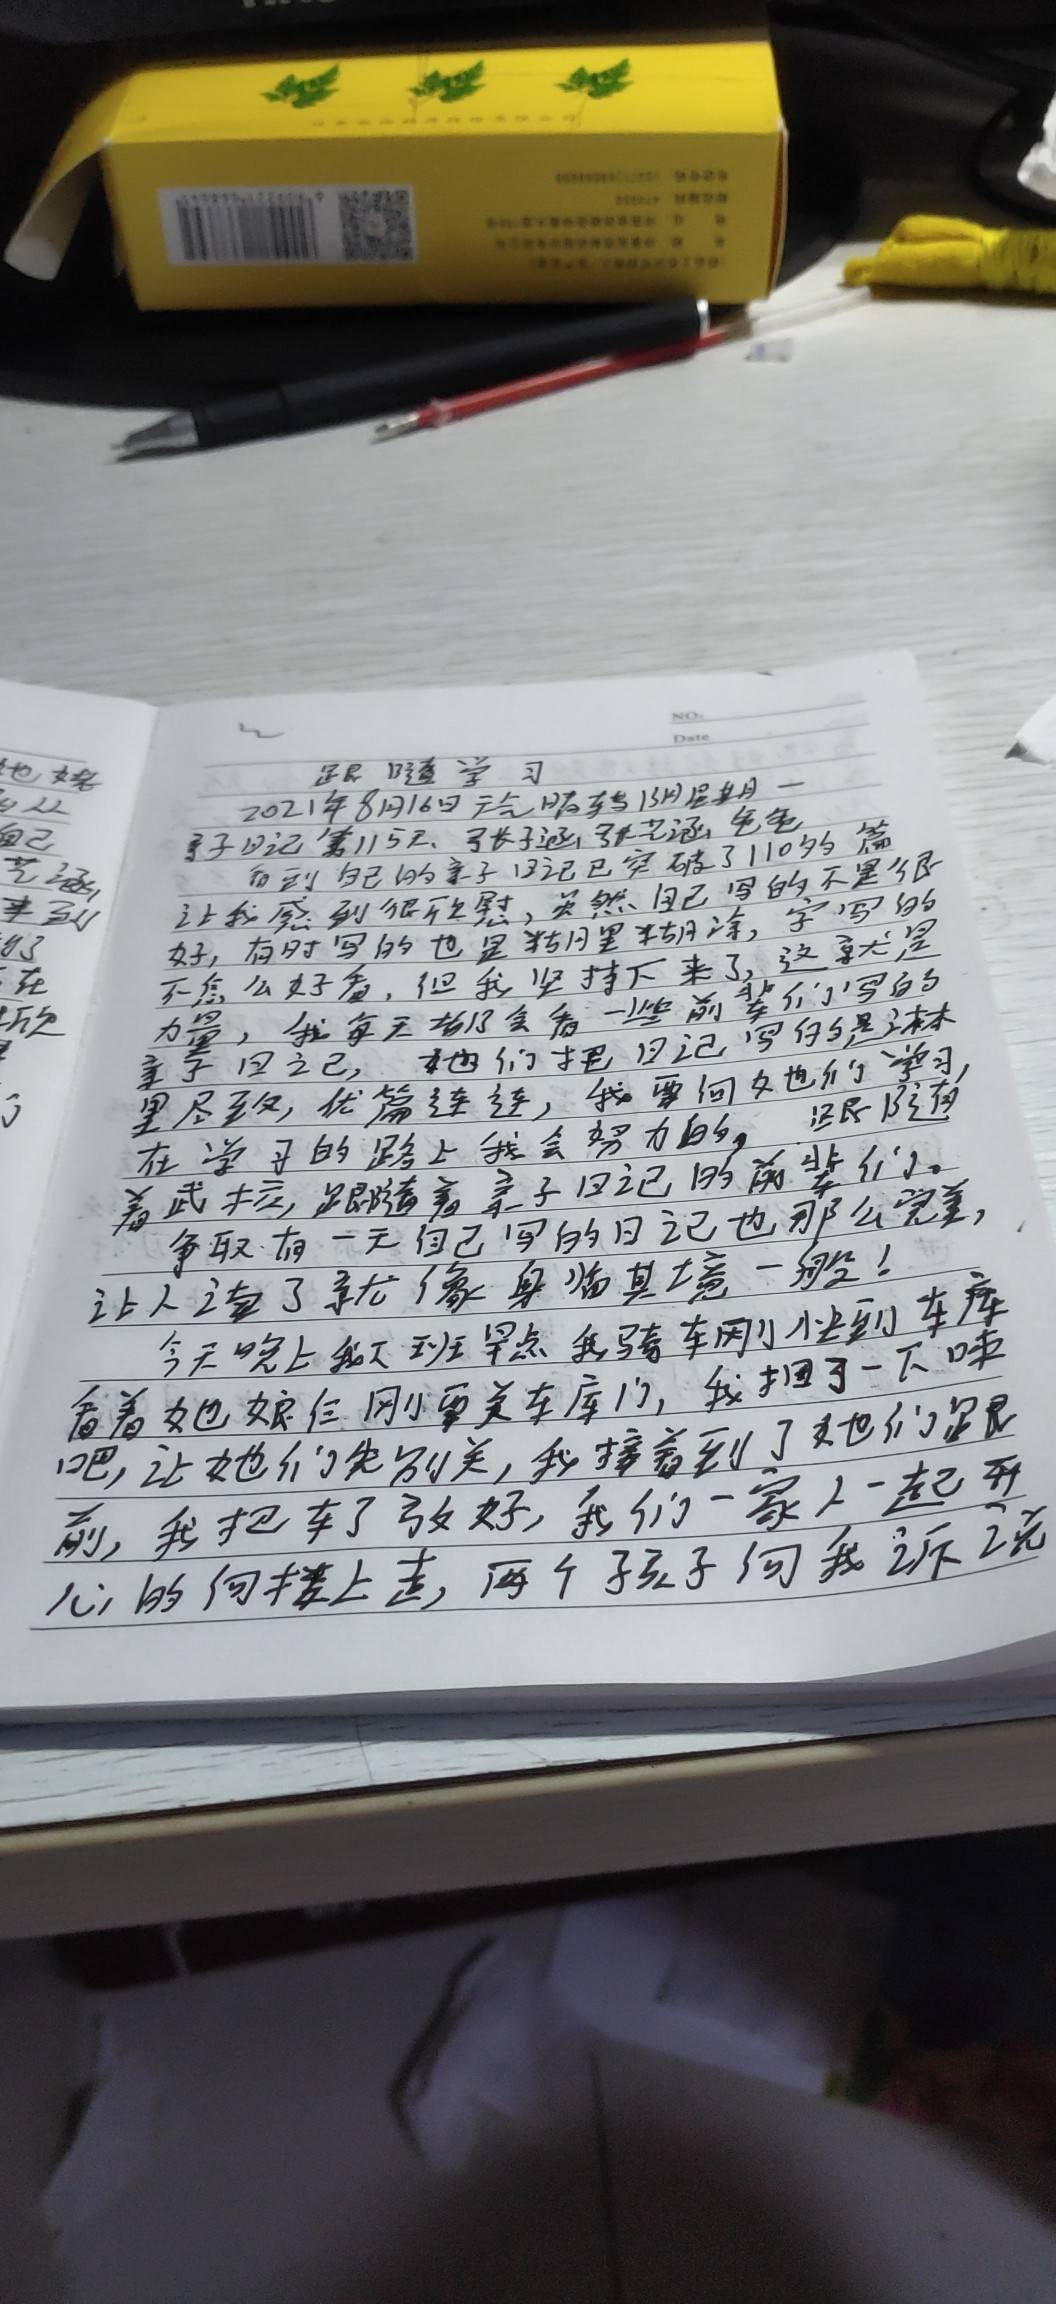 NO.
Date
跟随学习
2021年8月16日 天气晴转阴 星期一
亲子日记第115天、张子涵 张艺涵 爸爸
看到自己的亲子日记已突破了110多篇
让我感到很欣慰，虽然自己写的不是很
好，有时写的也是糊里糊涂，字写的
不怎么好看，但我坚持下来了，这就是
力量，我每天都会看一些前辈们写的
亲子日记，她们把日记写的是淋
里尽致，优篇连连，我要向她们学习，
在学习的路上我会努力的，跟随
着武校，跟随着亲子日记的前辈们。
争取有一天自己写的日记也那么完美，
让人读了就像身临其境一般！
今天晚上我下班早点我骑车刚快到车库
看着她娘仨刚要关车库门，我捆了一下喇
吧，让她们先别关，我接着到了她们跟
前，我把车子放好，我们一家人一起开
心的向楼上走，两个孩子向我诉说
她娘
自己
艺涵
来到
了
在
欣